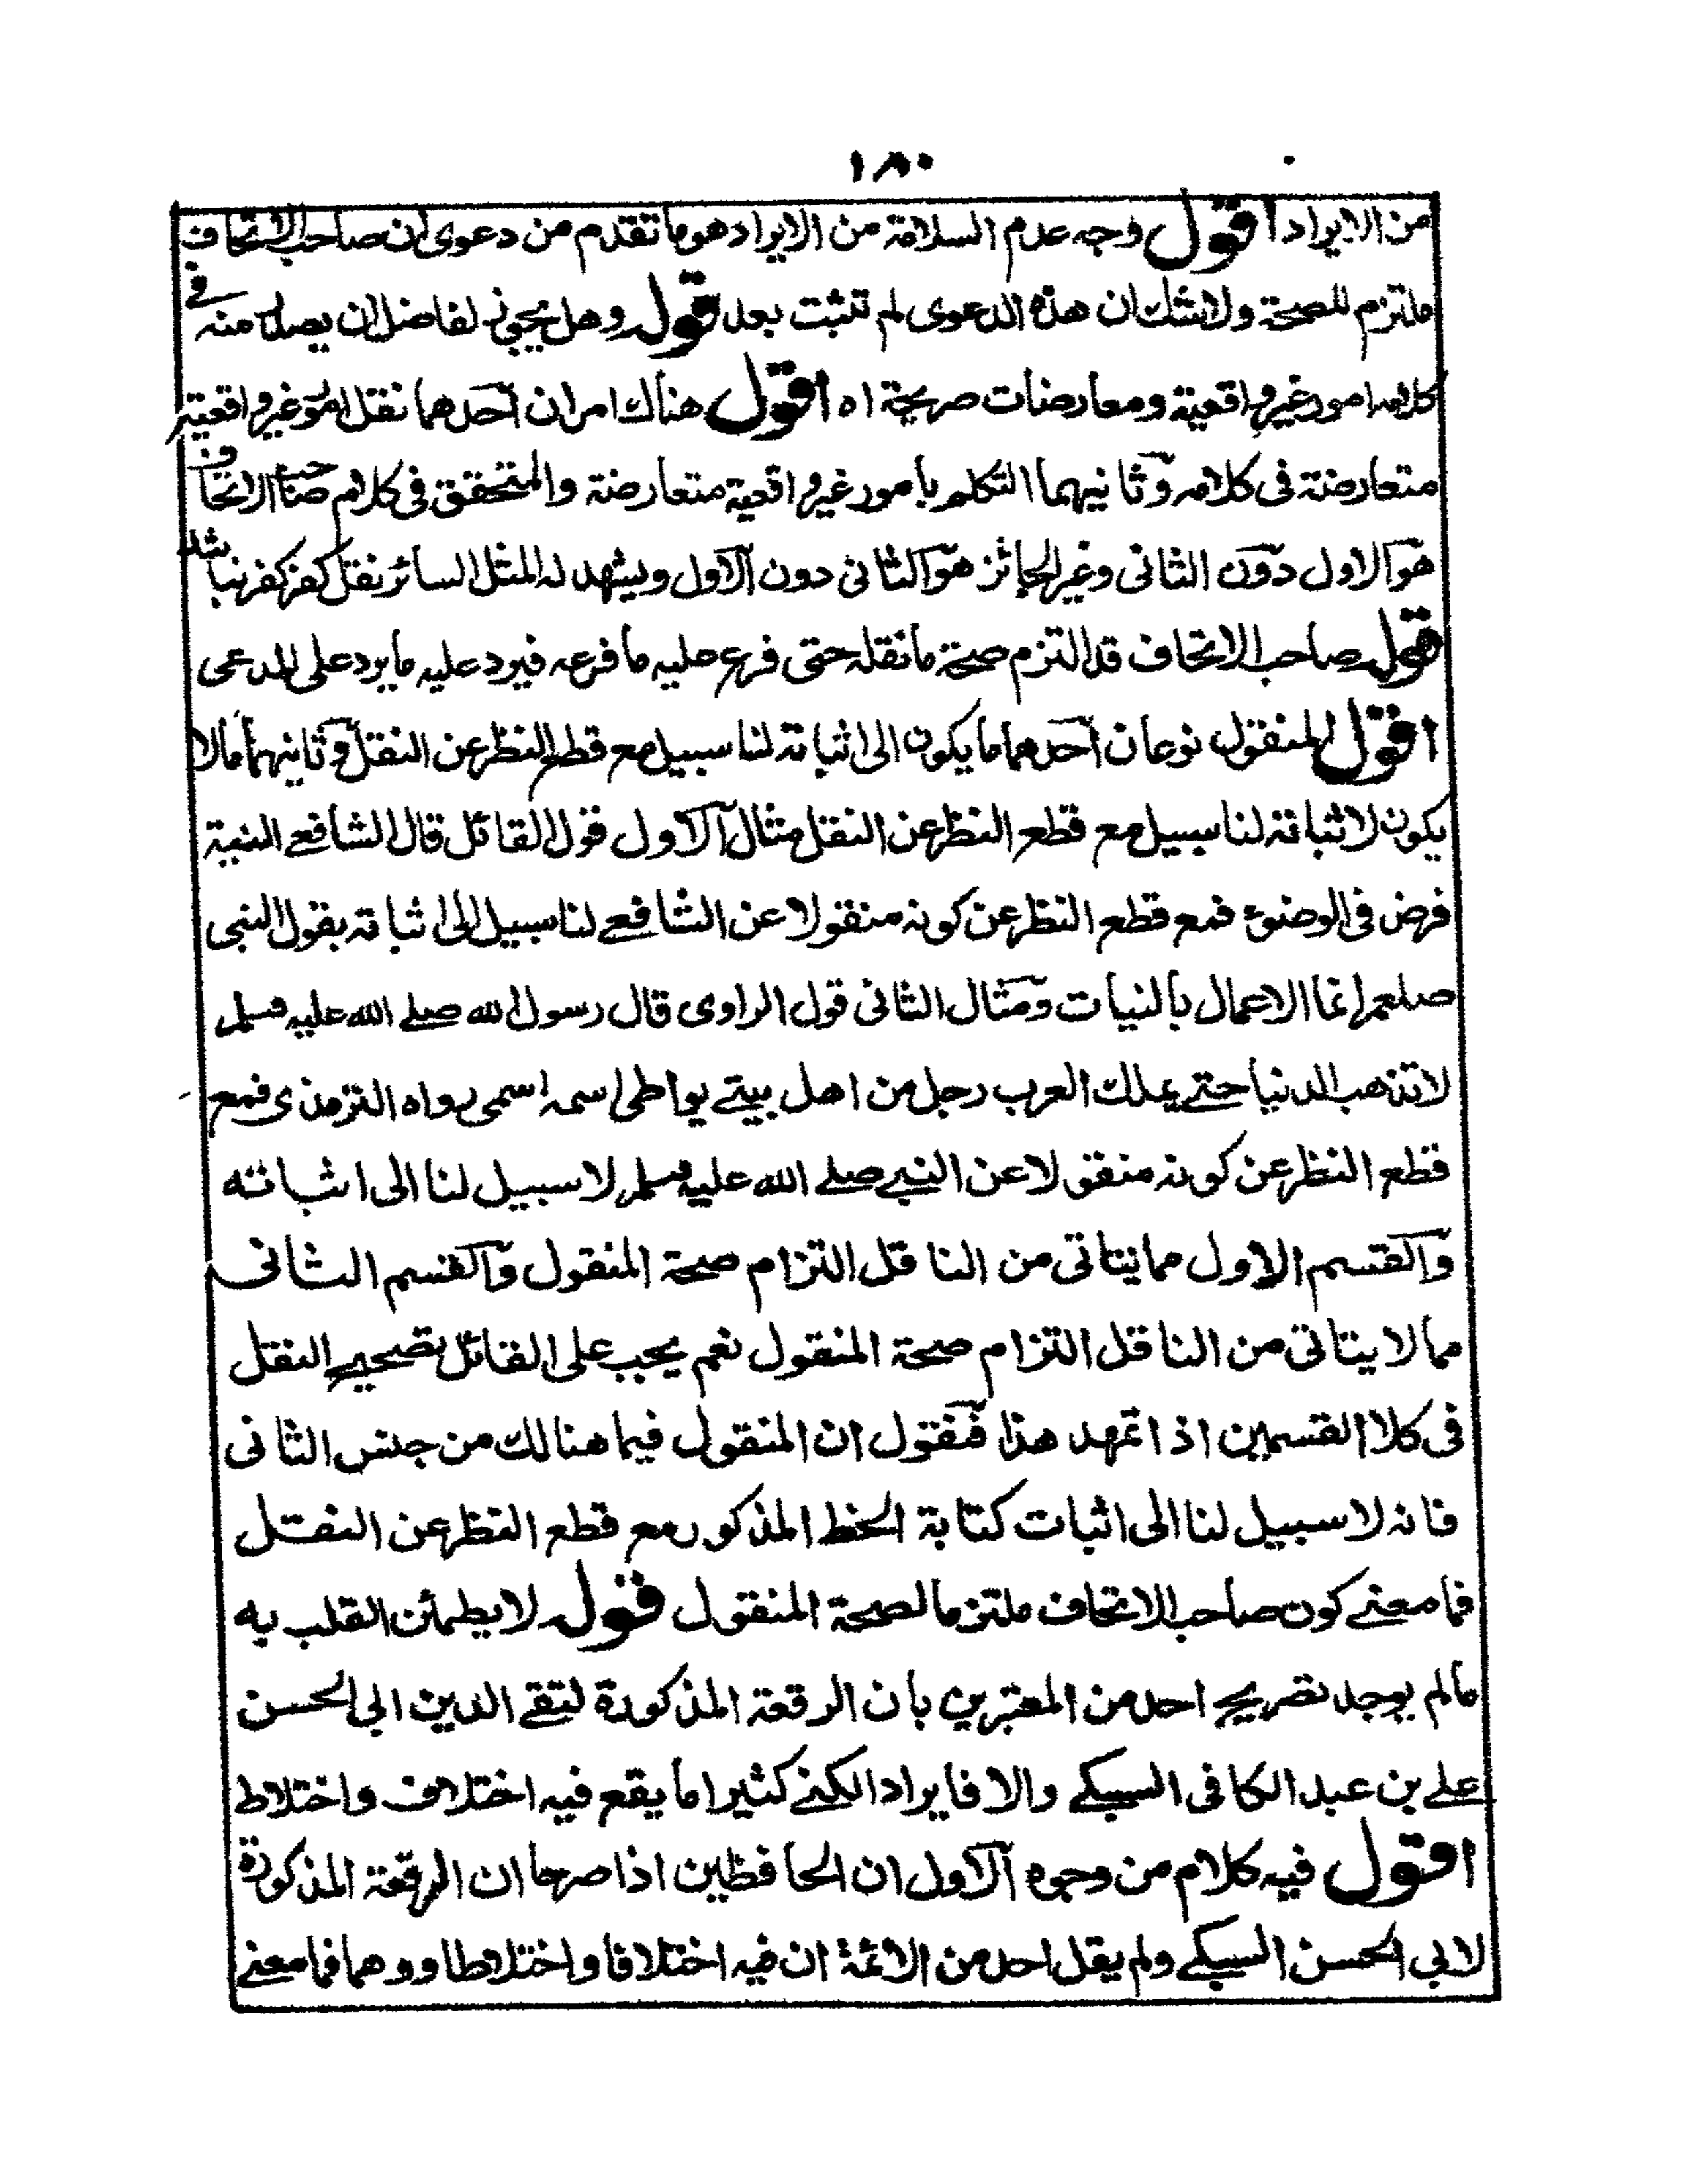 ١٨٠
من الايراد اقول وجه عدم السلامة من الايراد هو ما تقدم من دعوى ان صاحب الاتحاف
ملتزم للصحة ولا شك ان هذه الدعوى لم تثبت بعد قوله وهل يجوز لفاضل ان يصدر منه في
كلامه امور غير واقعية ومعارضات صريحة اه اقول هناك امران احدهما نقل امور غير واقعية
متعارضة فى كلامه وثانيهما التكلم بامور غير واقعية متعارضة والمتحقق فى كلام صاحب الاتحاف
هو الاول دون الثانى وغير الجائز هو الثانى دون الاول ويشهد له المثل السائر نقل كفر كفر نباشد
قوله صاحب الاتحاف قد التزم صحة ما نقله حتى فرع عليه ما فرعه فيرد عليه ما يرد على المدعى
اقول المنقول نوعان احدهما ما يكون الى اثباته لنا سبيل مع قطع النظر عن النقل وثانيهما ما لا
يكون لاثباته لنا سبيل مع قطع النظر عن النقل مثال الاول قول القائل قال الشافعے النية
فرض فى الوضوء فمع قطع النظر عن كونه منقولا عن الشافعے لنا سبيل الى اثباته بقول النبى
صلعم انما الاعمال بالنيات ومثال الثانى قول الراوى قال رسول الله صلے الله عليه وسلم
لا تذهب الدنيا حتے يملك العرب رجل من اهل بيتے يواطئ اسمه اسمى رواه الترمذى فمع
قطع النظر عن كونه منقولا عن النبے صلے الله عليه وسلم لا سبيل لنا الى اثباته
والقسم الاول مما يتاتى من الناقل التزام صحة المنقول والقسم الثانى
مما لا يتاتى من الناقل التزام صحة المنقول نعم يجب على القائل تصحيح النقل
فى كلا القسمين اذا تمهد هذا فنقول ان المنقول فيما هنالك من جنس الثانى
فانه لا سبيل لنا الى اثبات كتابة الخط المذكور مع قطع النظر عن النقل
فما معنے كون صاحب الاتحاف ملتزما لصحة المنقول قوله لا يطمئن القلب به
مالم يوجد تصريح احد من المعتبرين بان الرقعة المذكورة لتقے الدين ابى الحسن
علے بن عبد الكافى السبكے والا فايراد الكنے كثيرا ما يقع فيه اختلاف واختلاط
اقول فيه كلام من وجوه الاول ان الحافظين اذا صرحا ان الرقعة المذكورة
لابى الحسن السبكے ولم يقل احد من الائمة ان فيه اختلافا واختلاطا ووهما فما معنے